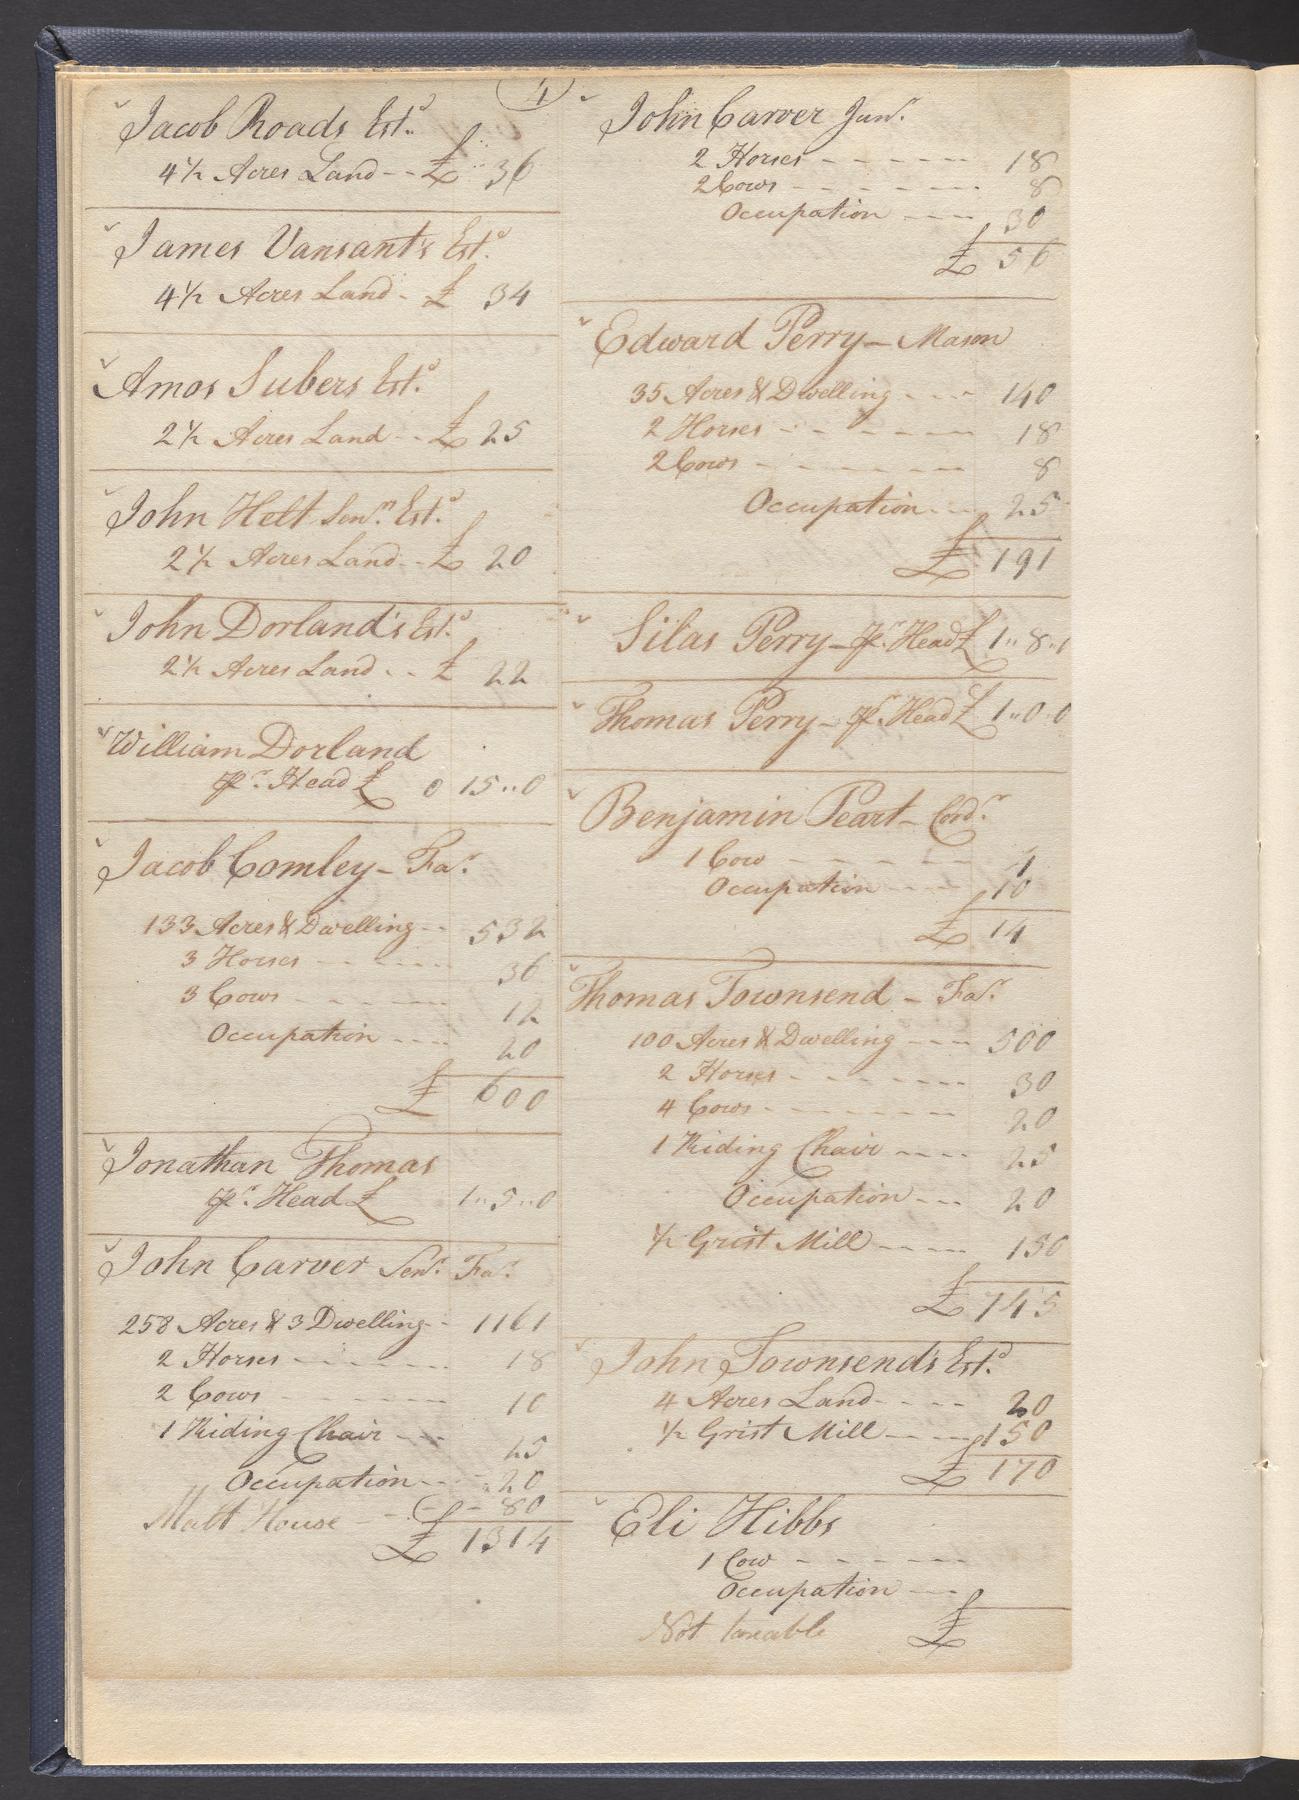 4
Jacob Roads Estd.
4½ Acres Land - - £ 36
James Vansant's Estd.
4½ Acres Land - £ 34
Amos Subers Estd.
2½ Acres Land - - £ 25
John Helt Senr. Estd.
2½ Acres Land - - £ 20
John Dorland's Estd.
2½ Acres Land - - £ 22
William Dorland
Pr. Head £ 0 15..0
Jacob Comley - Far.
133 Acres & Dwelling - - 532
3 Horses - - - - 36
3 Cows - - - - 12
Occupation - - - - 20
£ 600
Jonathan Thomas
Pr. Head £ 1..5..0
John Carver Senr. Far.
258 Acres & 3 Dwelling - - 1161
2 Horses - - - - 18
2 Cows - - - - 10
1 Riding Chair - - - 25
Occupation - - - 20
Malt House - - - 80
£ 1314
John Carver Junr.
2 Horses - - - - 18
2 Cows - - - - 8
Occupation - - - - 30
£ 56
Edward Perry - Mason
35 Acres & Dwelling - - - 140
2 Horses - - - - 18
2 Cows - - - - 8
Occupation - - - 25
£ 191
Silas Perry - Pr. Head £ 1..8..1
Thomas Perry - Pr. Head £ 1..0..0
Benjamin Peart - Cordr.
1 Cow - - - - 4
Occupation - - - - 10
£ 14
Thomas Townsend - Far.
100 Acres & Dwelling - - - 500
2 Horses - - - - 30
4 Cows - - - - 20
1 Riding Chair - - - - 25
Occupation - - - 20
½ Grist Mill - - - - 150
£ 745
John Townsend's Estd.
4 Acres Land - - - - 20
½ Grist Mill - - - - 150
£ 170
Eli Hibbs
1 Cow - - - -
Occupation - - -
Not taxable £